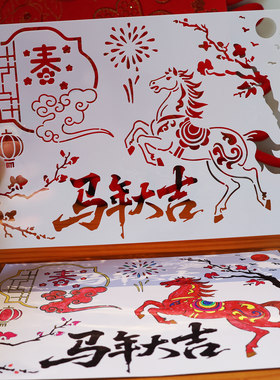 春
马年大吉
春
马年大吉